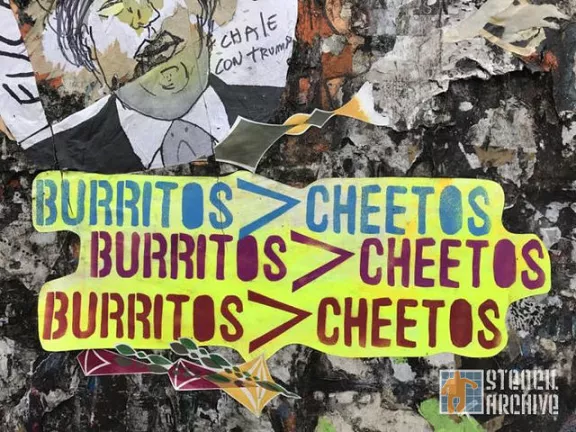 #CHALE
CON TRUMP
BURRITOS > CHEETOS
BURRITOS > CHEETOS
BURRITOS > CHEETOS
STENCIL
ARCHIVE